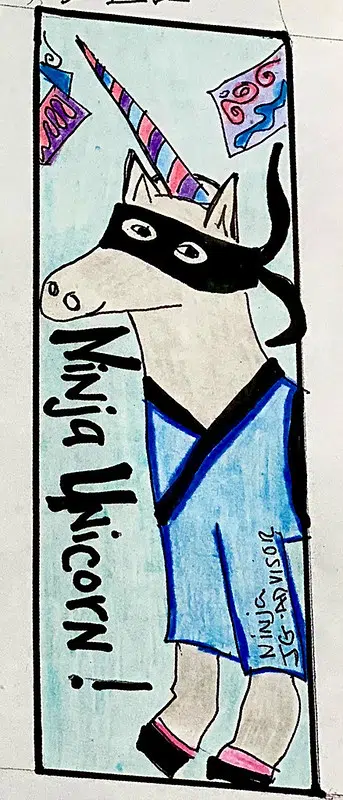 Ninja Unicorn!
Ninja
JG-ADVISOR